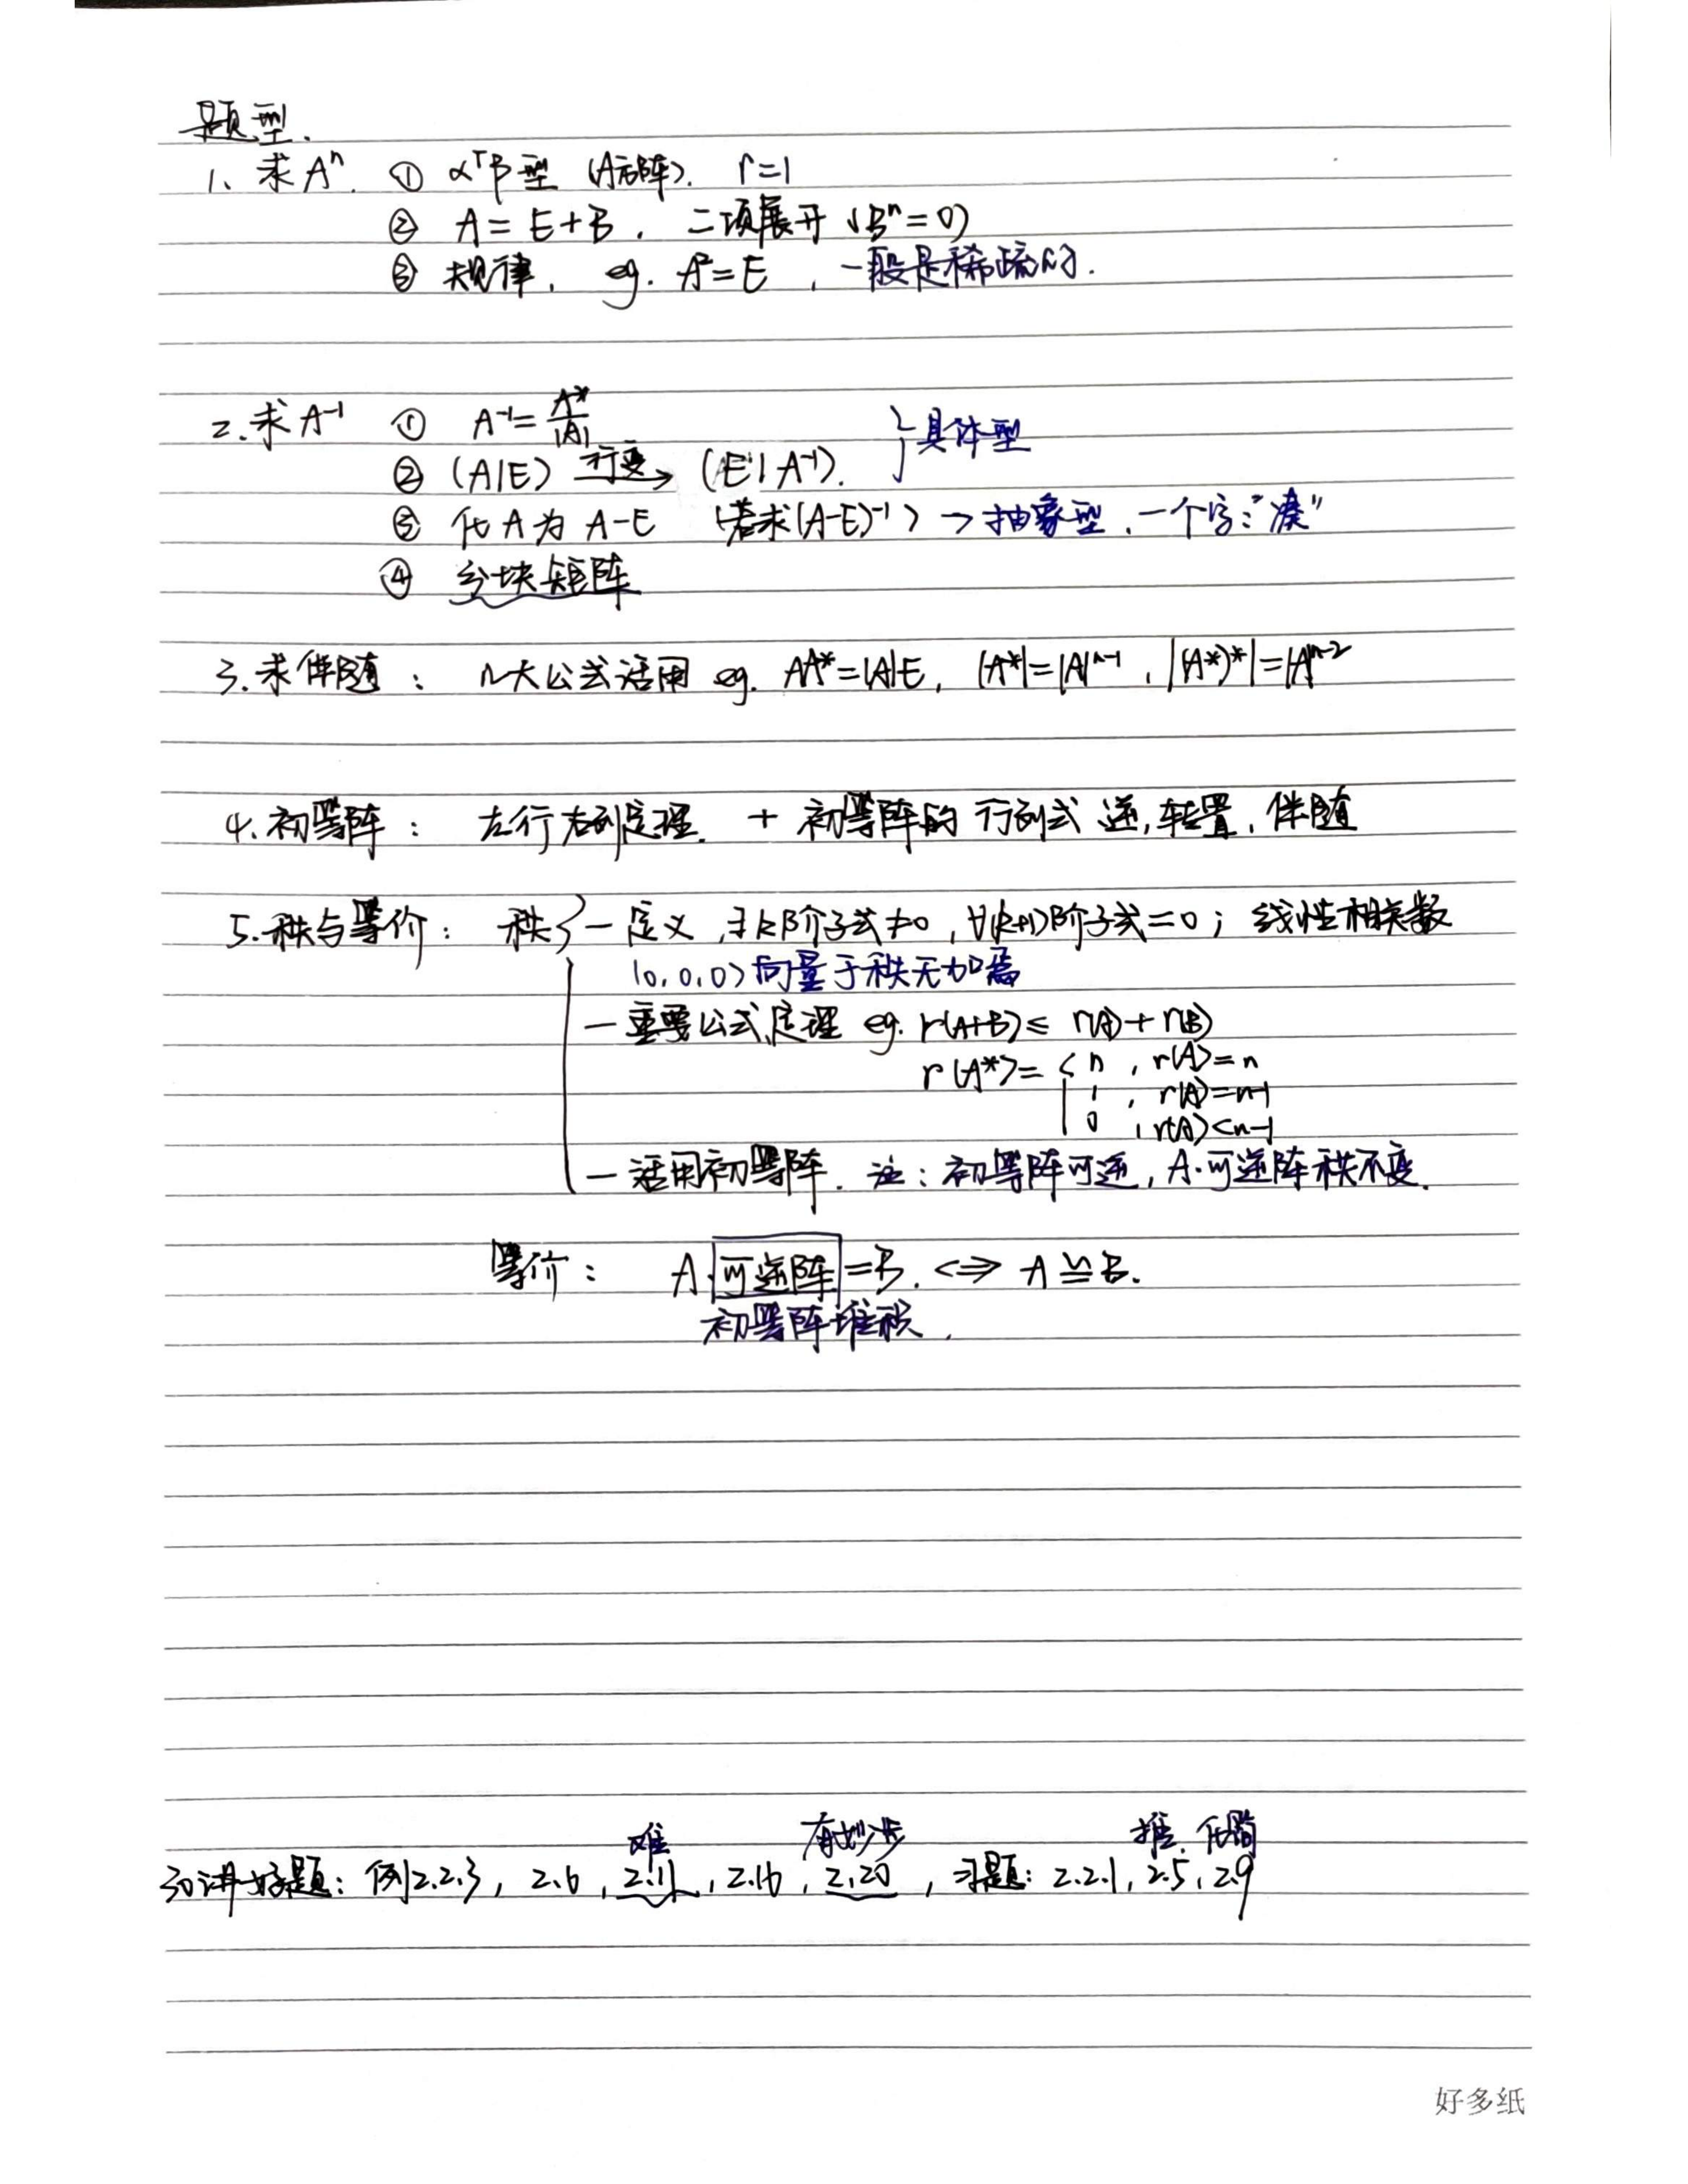 题型.
1、求Aⁿ. ① αᵀβ型 (A方阵). r=1
② A=E+B, 二项展开 (Bⁿ=0)
③ 规律, eg. A²=E , 一般是稀疏的.
2.求A⁻¹ ① A⁻¹=A*/|A|
② (A|E) 行变→ (E|A⁻¹). }具体型
③ 化A为A-E (若求(A-E)⁻¹) → 抽象型, 一个字:"凑"
④ 分块矩阵
3.求伴随: 几大公式活用 eg. AA*=|A|E, |A*|=|A|ⁿ⁻¹, |(A*)*|=|A|ⁿ⁻²
4.初等阵: 左行右列定理. + 初等阵的行列式、逆,转置,伴随
5.秩与等价: 秩{ — 定义, ∃k阶子式≠0, ∀(k+1)阶子式=0; 线性相关数
(0,0,0)向量于秩无加
— 重要公式、定理 eg. r(A+B)≤r(A)+r(B)
r(A*)={ n , r(A)=n
1 , r(A)=n-1
0 , r(A)<n-1
— 活用初等阵. 注: 初等阵可逆, A·可逆阵秩不变.
等价: A·可逆阵=B. ⟺ A≌B.
初等阵堆积.
难 有妙步 推. 化简
30讲好题: 例2.2.3, 2.6, 2.11, 2.16, 2.20, 习题: 2.2.1, 2.5, 2.9
好多纸